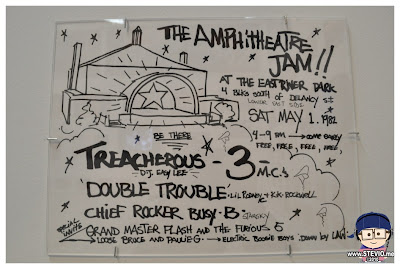 THE AMPHITHEATRE
JAM!!
AT THE EAST RIVER PARK
4 BLKS SOUTH OF DELANCY ST
LOWER EAST SIDE
SAT MAY 1. 1982
4-9 PM → COME EARLY
FREE, FREE, FREE, FREE,
BE THERE
TREACHEROUS - 3 - M.C.s
D.J. EASY LEE
'DOUBLE TROUBLE' · LIL RODNEY & K.K. ROCKWELL
CHIEF ROCKER BUSY · B · STARSKY
SPECIAL INVITE GRAND MASTER FLASH AND THE FURIOUS 5
→ LOOSE BRUCE AND PAULIE G → ELECTRIC BOOGIE BOYS DOWN BY LAW
www.STEVIO.me